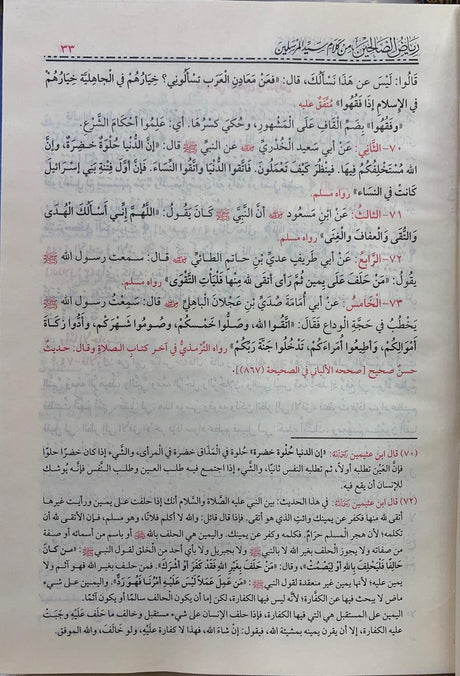 رياض الصالحين من كلام سيد المرسلين ٣٣
قَالُوا: لَيْسَ عن هَذَا نَسْأَلُكَ، قال: «فعَنْ مَعَادِنِ العَرَب تسـأَلُوني؟ خِيَارُهُمْ في الجَاهِليَّةِ خِيَارُهُمْ
في الإسلامِ إذَا فَقُهُوا» مُتَّفَقٌ عليه
«وفَقُهُوا» بِضَمِّ القَافِ عَلَى المَشْهورِ، وحُكِيَ كَسْرُهَا. أي: عَلِمُوا أحْكَامَ الشَّرْعِ.
٧٠- الثَّاني: عَنْ أبي سَعيدٍ الخُدْريِّ ﵁ عن النبيِّ ﷺ قال: «إنَّ الدُّنْيا حُلْوَةٌ خَضِرَةٌ، وإنَّ
اللهَ مُسْتَخْلِفُكُمْ فِيهَا. فينْظُرَ كَيْفَ تَعْمَلُونَ. فَاتَّقوا الدُّنْيَا واتَّقُوا النِّسَاءَ. فَإنَّ أوَّلَ فِتْنَةِ بَنِي إسْرَائيلَ
كَانَتْ في النسَاء» رواه مسلم.
٧١- الثَّالثُ: عَنْ ابْنِ مَسْعُودٍ ﵁ أنَّ النَّبيَّ ﷺ كَـانَ يَقُولُ: «اللَّهُمَّ إنِّي أَسْأَلُكَ الْهُدَى
والتُّقَى والْعَفافَ والْغِنَى» رواه مسلم.
٧٢- الرَّابعُ: عَنْ أبي طَريفٍ عديِّ بْنِ حاتِمٍ الطائِيِّ ﵁ قال: سـمعت رسول الله ﷺ
يقُولُ: «مَنْ حَلَفَ عَلَى يَمِين ثُمَّ رَأَى أتقَى لله مِنْها فَلْيَأْتِ التَّقْوَى» رواه مسلم.
٧٣- الْخَامسُ: عَنْ أبي أُمَامَةَ صُدَيِّ بْنِ عَجْلانَ الباهِلِيِّ ﵁ قال: سَمِعْتُ رسول الله ﷺ
يَخْطُبُ في حَجَّةِ الْوداع فَقَالَ: «اتَّقُوا الله، وصَلُّوا خَمْسَكُمْ، وصُومُوا شَهْرَكمْ، وأَدُّوا زكَاةَ
أَمْوَالِكُمْ، وَأَطِيعُوا أُمَرَاءَكُمْ، تَدْخُلُوا جَنَّةَ رَبِّكُمْ» رواه التِّرْمذيُّ في آخر كتاب الصلاةِ وقال: حديثٌ
حسنٌ صحيح [صححه الألباني في الصحيحة (٨٦٧)].
(٧٠) قال ابن عثيمين رَحِمَهُ اللَّهُ: «إن الدنيا حُلْوة خضرة» حُلوة في المَذَاق خضرة في المرأى، والشَّيء إذا كان خضرًا حلوًا
فإنَّ العَيْن تطلبه أولاً، ثم تطلبه النفس ثانيًا، والشَّيء إذا اجتمع فيـه طلب العـين وطلـب النَّـفْس فإنَّه يُوشـك
للإنسان أن يقع فيه.
(٧٢) قال ابن عثيمين رَحِمَهُ اللَّهُ: في هذا الحديث: بين النبي عليه الصَّلاة والسَّلام أنك إذا حلفت علـى يمـين ورأيـت غيرهـا
أتقى لله منها فكفر عن يمينك وائتِ الذي هو أتقى. فإذا قال قائل: والله لا أكلم فلانًا، وهو مسلم، فـإن الأتقـى لله أن
تكلمه؛ لأن هجر المسلم حرامٌ، فكلمه وكفر عن يمينك، واليمـين هـي الحلـف بالله ﷻ أو باسم من أسمائه أو صفة
من صفاته ولا يجوز الحلف بغير الله لا بالنبي ﷺ ولا بجبريل ولا بأي أحد من الخلق لقول النبـي ﷺ: «مـن كـانَ
حَالِفًا فَلْيَحْلِف بِالله أَوْ لِيَصْمُتْ»، وقال ﷺ: «مَنْ حَلَفَ بِغَيْرِ اللهِ فَقَدْ كَفَرَ أَوْ أَشْرَكَ». فمن حلـف بغير الله فهو آثـم ولا
يمين عليه؛ لأنها يمين غير منعقدة لقول النبي ﷺ: «مَن عَمِلَ عَمَلاً لَيْسَ عَلَيهِ أَمْرُنَا فَهُوَ رَدٌّ». واليمين على شـيء
ماض لا يبحث فيها عن الكفَّارة؛ لأنَّه ليس فيها الكفارة، لكن إما أن يكون الحالف سالمًا أو يكون آثمًا.
اليمين على المستقبل هي التي فيها الكفارة، فإذا حلف الإنسان على شيء مستقبل وخالف ما حَلَف عَلَيْه وَجَبَـتْ
عليه الكفارة، إلا أن يقرن يمينه بمشيئة الله، فيقول: إنْ شَاءَ الله، فهذا لا كفارة عَلَيْهِ، ولو خَالَفَ، والله الموفق.